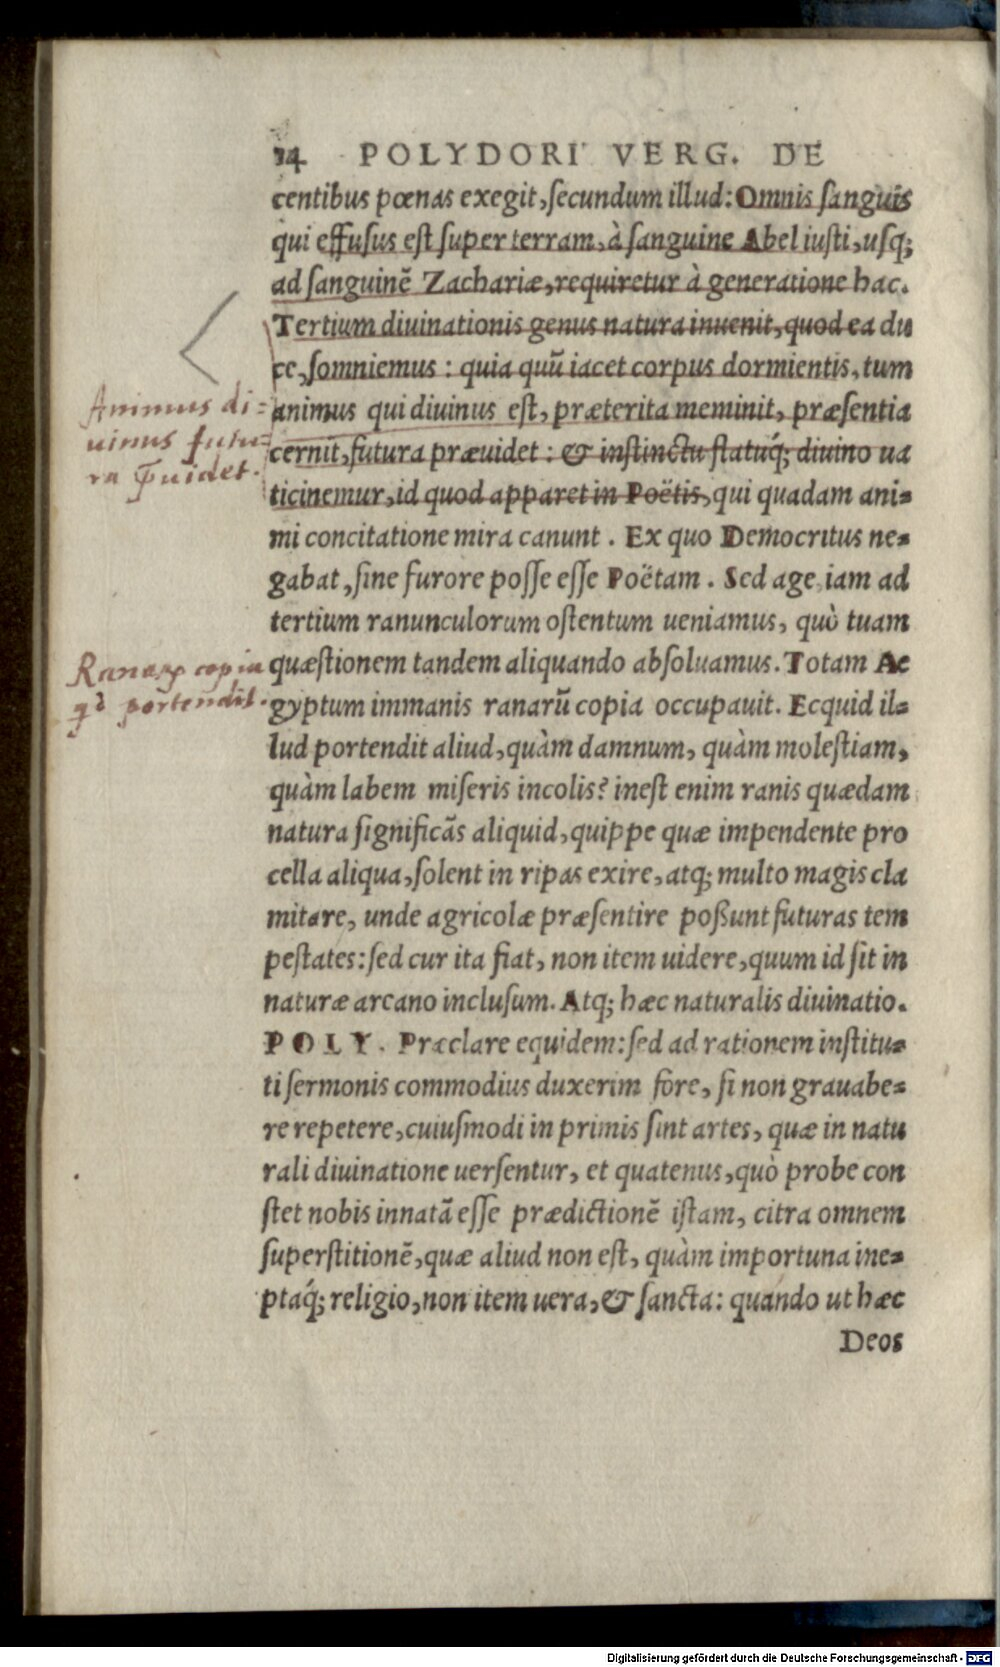 14 POLYDORI VERG. DE
centibus pœnas exegit, ſecundum illud: Omnis ſanguis
qui effuſus eſt ſuper terram, à ſanguine Abel iuſti, uſq;
ad ſanguinẽ Zachariæ, requiretur à generatione hac.
Tertium diuinationis genus natura inuenit, quod ea du
ce, ſomniemus: quia quũ iacet corpus dormientis, tum
animus qui diuinus eſt, præterita meminit, præſentia
cernit, futura præuidet: & inſtinctu flatuq́; diuino ua
ticinemur, id quod apparet in Poëtis, qui quadam ani-
mi concitatione mira canunt. Ex quo Democritus ne-
gabat, ſine furore poſſe eſſe Poëtam. Sed age iam ad
tertium ranunculorum oſtentum ueniamus, quò tuam
quæſtionem tandem aliquando abſoluamus. Totam Ae
gyptum immanis ranarũ copia occupauit. Ecquid il-
lud portendit aliud, quàm damnum, quàm moleſtiam,
quàm labem miſeris incolis? ineſt enim ranis quædam
natura ſignificãs aliquid, quippe quæ impendente pro
cella aliqua, ſolent in ripas exire, atq; multo magis cla
mitare, unde agricolæ præſentire poßunt futuras tem
peſtates: ſed cur ita fiat, non item uidere, quum id ſit in
naturæ arcano incluſum. Atq; hæc naturalis diuinatio.
POLY. Præclare equidem: ſed ad rationem inſtitu-
ti ſermonis commodius duxerim fore, ſi non grauabe-
re repetere, cuiuſmodi in primis ſint artes, quæ in natu
rali diuinatione uerſentur, et quatenus, quò probe con
ſtet nobis innatã eſſe prædictionẽ iſtam, citra omnem
ſuperſtitionẽ, quæ aliud non eſt, quàm importuna ine-
ptaq́; religio, non item uera, & ſancta: quando ut hæc
Deos
Animus di-
uinus futu-
ra p̃uidet.
Ranaꝝ copia
qd portendit.
Digitalisierung gefördert durch die Deutsche Forschungsgemeinschaft - DFG